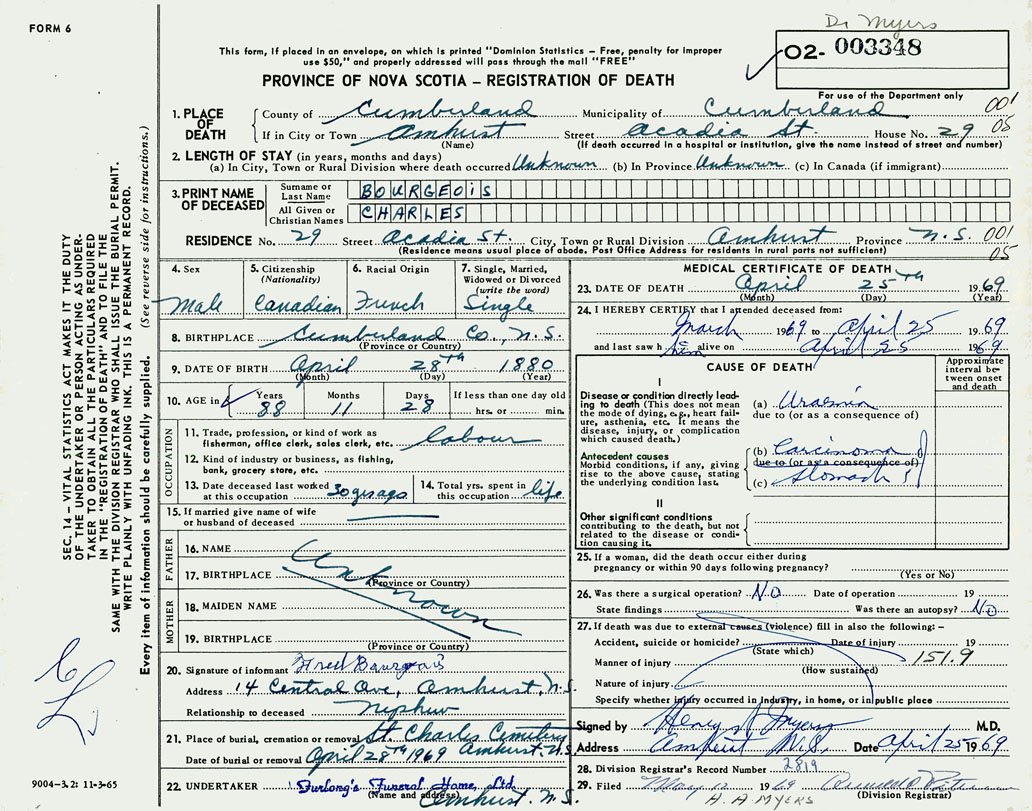 Dr Myers
FORM 6
This form, if placed in an envelope, on which is printed "Dominion Statistics – Free, penalty for improper
use $50," and properly addressed will pass through the mail "FREE"
PROVINCE OF NOVA SCOTIA – REGISTRATION OF DEATH
O2- 003348
For use of the Department only
1. PLACE OF DEATH County of Cumberland Municipality of Cumberland 001
If in City or Town Amhurst Street Acadia St. House No. 29 05
(Name) (If death occurred in a hospital or institution, give the name instead of street and number)
2. LENGTH OF STAY (in years, months and days)
(a) In City, Town or Rural Division where death occurred Unknown (b) In Province Unknown (c) In Canada (if immigrant)
3. PRINT NAME OF DECEASED Surname or Last Name BOURGEOIS
All Given or Christian Names CHARLES
RESIDENCE No. 29 Street Acadia St. City, Town or Rural Division Amhurst Province N.S. 001
(Residence means usual place of abode. Post Office Address for residents in rural parts not sufficient) 05
4. Sex Male
5. Citizenship (Nationality) Canadian
6. Racial Origin French
7. Single, Married, Widowed or Divorced (write the word) Single
8. BIRTHPLACE Cumberland Co., N.S.
(Province or Country)
9. DATE OF BIRTH April 28th 1880
(Month) (Day) (Year)
10. AGE in Years 88 Months 11 Days 28 If less than one day old hrs. or min.
OCCUPATION
11. Trade, profession, or kind of work as
fisherman, office clerk, sales clerk, etc. labour
12. Kind of industry or business, as fishing,
bank, grocery store, etc.
13. Date deceased last worked at this occupation 30 yrs ago
14. Total yrs. spent in this occupation life
15. If married give name of wife
or husband of deceased
FATHER
16. NAME
17. BIRTHPLACE
(Province or Country)
Unknown
MOTHER
18. MAIDEN NAME
19. BIRTHPLACE
(Province or Country)
20. Signature of informant Fred Bourgeois
Address 14 Central Ave, Amhurst, N.S.
Relationship to deceased Nephuw
21. Place of burial, cremation or removal St Charles Cemetery
Amhurst. N.S.
Date of burial or removal April 28th 1969
22. UNDERTAKER Furlong's Funeral Home, Ltd.
(Name and address) Amhurst. N.S.
MEDICAL CERTIFICATE OF DEATH
23. DATE OF DEATH April 25th 1969
(Month) (Day) (Year)
24. I HEREBY CERTIFY that I attended deceased from:
March 1969 to April 25 1969
and last saw him alive on April 25 1969
CAUSE OF DEATH
Approximate interval between onset and death
I
Disease or condition directly leading to death (This does not mean
the mode of dying, e.g., heart failure, asthenia, etc. It means the
disease, injury, or complication
which caused death.)
(a) Uraemia
due to (or as a consequence of)
Antecedent causes
Morbid conditions, if any, giving
rise to the above cause, stating
the underlying condition last.
(b) Carcinoma
due to (or as a consequence of)
(c) Stomach
II
Other significant conditions
contributing to the death, but not
related to the disease or condition causing it.
25. If a woman, did the death occur either during
pregnancy or within 90 days following pregnancy?
(Yes or No)
26. Was there a surgical operation? NO Date of operation 19
State findings Was there an autopsy? No
27. If death was due to external causes (violence) fill in also the following:-
Accident, suicide or homicide? Date of injury 19
(State which)
Manner of injury 151.9
(How sustained)
Nature of injury
Specify whether injury occurred in industry, in home, or in public place
Signed by Henry A Myers M.D.
Address Amherst N.S. Date April 25 1969
28. Division Registrar's Record Number 2819
29. Filed May 12 1969
(Division Registrar)
H. A MYERS
SEC. 14 – VITAL STATISTICS ACT MAKES IT THE DUTY
OF THE UNDERTAKER OR PERSON ACTING AS UNDER-
TAKER TO OBTAIN ALL THE PARTICULARS REQUIRED
IN THE "REGISTRATION OF DEATH" AND TO FILE THE
SAME WITH THE DIVISION REGISTRAR WHO SHALL ISSUE THE BURIAL PERMIT.
WRITE PLAINLY WITH UNFADING INK. THIS IS A PERMANENT RECORD.
Every item of information should be carefully supplied. (See reverse side for instructions.)
9004–3.2: 11-3-65